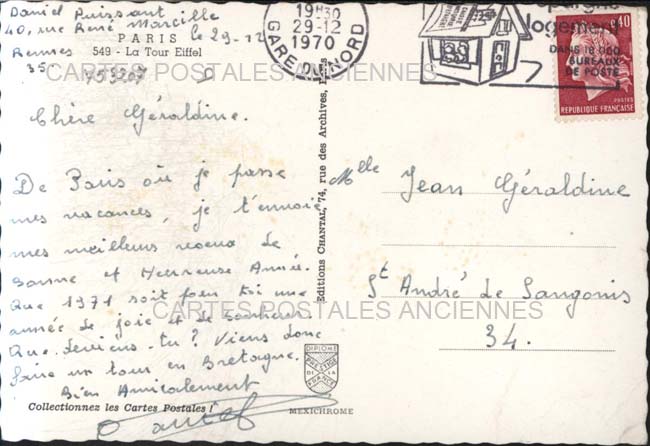 Daniel Puissant
40, rue René Marcille
Rennes
35
PARIS
549 - La Tour Eiffel
le 29-12
19H30
29-12
1970
GARE DU NORD
logement
DANS 18 000
BUREAUX
DE POSTE
0,40
POSTES
REPUBLIQUE FRANÇAISE
CARTES POSTALES ANCIENNES
753207
Chère Géraldine.
De Paris où je passe
mes vacances, je t'envoie
mes meilleurs voeux de
Bonne et Heureuse Année.
Que 1971 soit pour toi une
année de joie et de bonheur
Que deviens-tu? Viens donc
faire un tour en Bretagne.
Bien Amicalement
Daniel
Collectionnez les Cartes Postales !
Editions CHANTAL, 74, rue des Archives, Paris
Mlle Jean Géraldine
St André de Sangonis
34.
CARTES POSTALES ANCIENNES
DIPLOME
PRESTIGE
DE LA
FRANCE
MEXICHROME